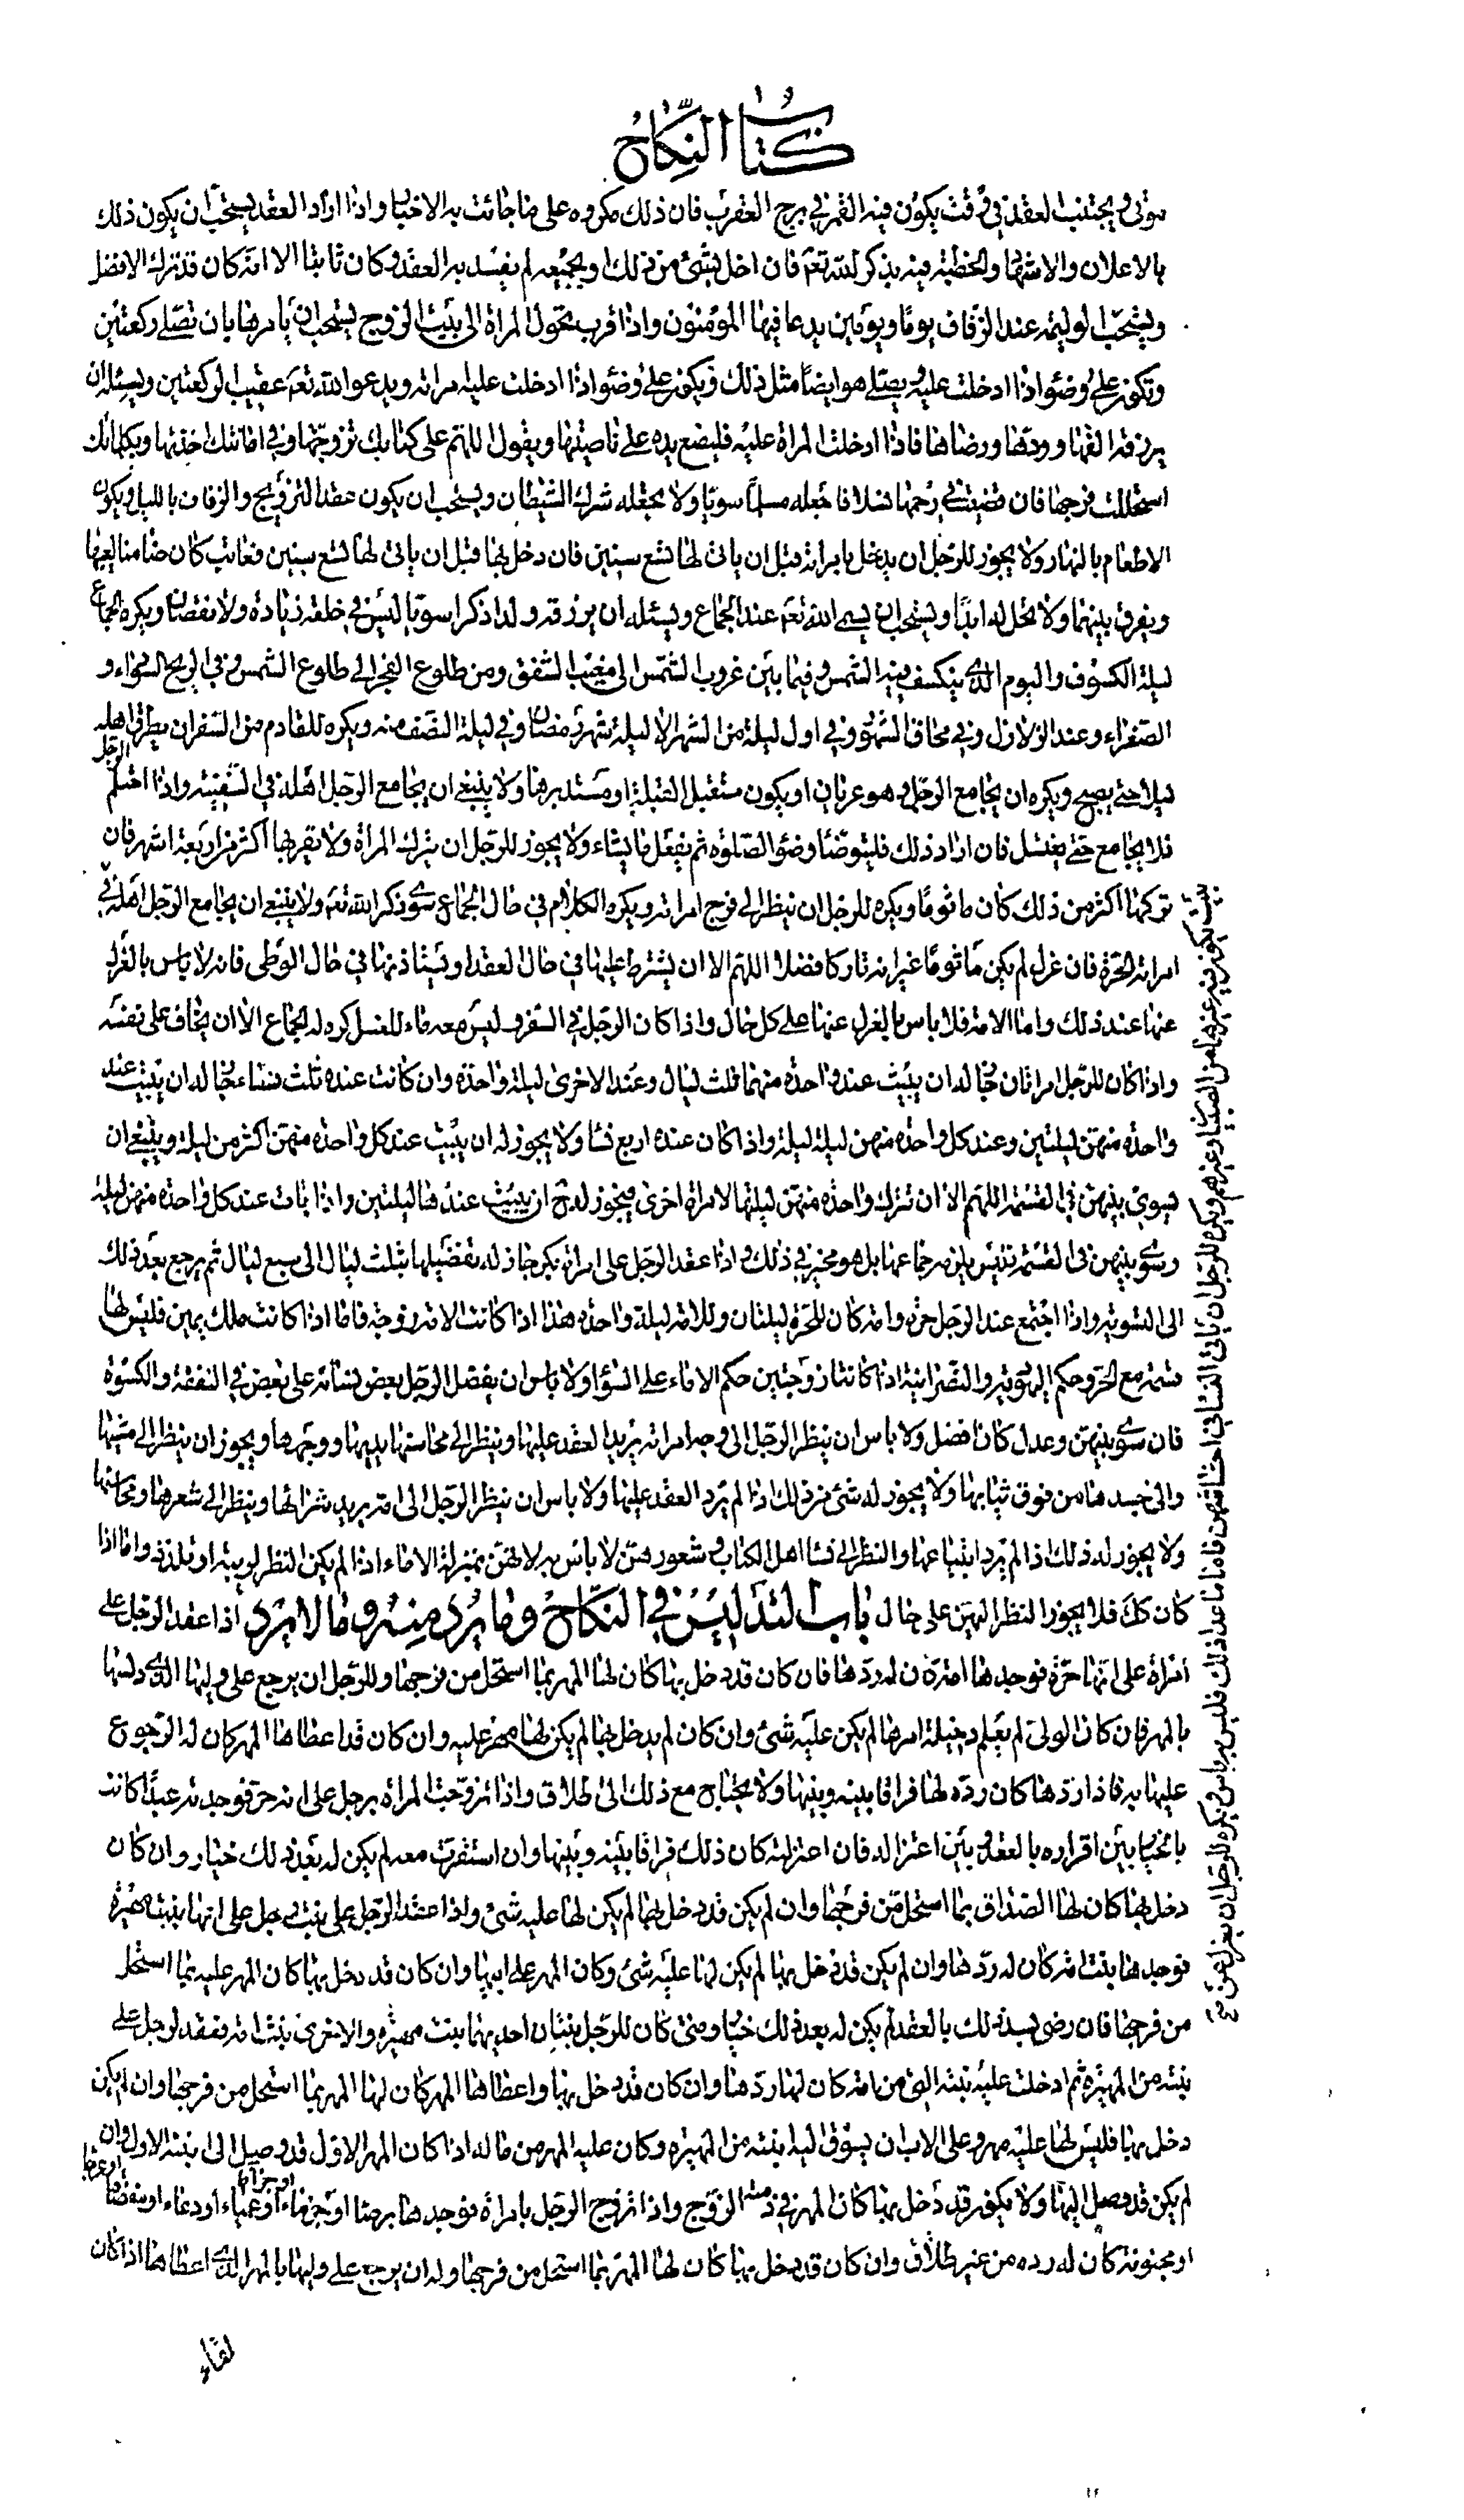 كتاب النكاح
سوى ويجتنب العقد في وقت يكون فيه القمر في برج العقرب فان ذلك مكروه على ما جائت به الاخبار واذا اراد العقد يستحب ان يكون ذلك
بالاعلان والاشهاد والخطبة فيه بذكر الله تعم فان اخل بشئ من ذلك او بجميعه لم يفسد به العقد وكان ثابتا الا انه كان قد ترك الافضل
ويستحب الوليمة عند الزفاف يوما ويومين يدعا فيها المؤمنون واذا قرب تحول المراة الى بيت الزوج يستحب ان يامرها بان تصلى ركعتين
وتكون على وضؤ اذا ادخلت عليه ويصلى هو ايضا مثل ذلك ويكون على وضؤ اذا ادخلت عليه امراته ويدعو الله تعم عقيب الركعتين ويسئله ان
يرزقه الفها وودها ورضاها فاذا ادخلت المراة عليه فليضع يده على ناصيتها ويقول اللهم على كتابك تزوجتها وفي امانتك اخذتها وبكلماتك
استحللت فرجها فان قضيت في رحمها نسلا فاجعله مسلما سويا ولا تجعله شرك الشيطان ويستحب ان يكون عقد التزويج والزفاف بالليل ويكون
الاطعام بالنهار ولا يجوز للرجل ان يدخل بامراته قبل ان ياتى لها تسع سنين فان دخل بها قبل ان ياتى لها تسع سنين فعابت كان ضامنا لعيبها
ويفرق بينهما ولا تحل له ابدا ويستحب ان يسمى الله تعم عند الجماع ويسئله ان يرزقه ولدا ذكرا سويا ليس في خلقه زيادة ولا نقصان ويكره الجماع
ليلة الكسوف واليوم الذي ينكسف فيه الشمس وفيما بين غروب الشمس الى مغيب الشفق ومن طلوع الفجر الى طلوع الشمس وفي الريح السوداء و
الصفراء وعند الزلازل وفي محاق الشهور وفي اول ليلة من الشهر الا ليلة شهر رمضان وفي ليلة النصف منه ويكره للقادم من السفر ان يطرق اهله
ليلا حتى يصبح ويكره ان يجامع الرجل وهو عريان او يكون مستقبل القبلة او مستدبرها ولا ينبغي ان يجامع الرجل اهله في السفينة واذا احتلم الرجل
فلا يجامع حتى يغتسل فان اراد ذلك فليتوضا وضؤ الصلوة ثم يفعل ما يشاء ولا يجوز للرجل ان يترك المراة ولا يقربها اكثر من اربعة اشهر فان
تركها اكثر من ذلك كان ماثوما ويكره للرجل ان ينظر الى فرج امراته ويكره الكلام في حال الجماع سوى ذكر الله تعم ولا ينبغي ان يجامع الرجل اهله في
بيت يكون فيه غيرهما من الصبيان وغيرهم ويكره للرجل ان ياتى النساء في احشاشهن فاما ما عدا ذلك فليس به باس ويكره للرجل ان يعزل عن
امراته الحرة فان عزل لم يكن ماثوما غير انه تاركا فضلا اللهم الا ان يشترط عليها في حال العقد او يستاذنها في حال الوطى فانه لا باس بالعزل
عنها عند ذلك واما الامة فلا باس بالعزل عنها على كل حال واذا كان الرجل في السفر وليس معه ماء للغسل كره له الجماع الا ان يخاف على نفسه
واذا كان للرجل امراتان جاز له ان يبيت عند واحدة منهما ثلث ليال وعند الاخرى ليلة واحدة وان كانت عنده ثلث نساء جاز له ان يبيت عند
واحدة منهن ليلتين وعند كل واحدة منهن ليلة ليلة واذا كان عنده اربع نساء ولا يجوز له ان يبيت عند كل واحدة منهن اكثر من ليلة وينبغي ان
يسوي بينهن في القسمة اللهم الا ان تترك واحدة منهن ليلتها لامراة اخرى فيجوز له ح ان يبيت عندها ليلتين واذا بات عند كل واحدة منهن ليلة
وسوى بينهن في القسمة فليس يلزمه جماعها بل هو مخير في ذلك واذا عقد الرجل على امراة بكر جاز له تفضيلها بثلث ليال الى سبع ليال ثم يرجع بعد ذلك
الى التسوية واذا اجتمع عند الرجل حرة وامة كان للحرة ليلتان وللامة ليلة واحدة هذا اذا كانت الامة زوجة فاما اذا كانت ملك يمين فليس لها
قسمة مع الحرة وحكم اليهودية والنصرانية اذا كانتا زوجتين حكم الاماء على السواء ولا باس ان يفضل الرجل بعض نسائه على بعض في النفقة والكسوة
فان سوى بينهن وعدل كان افضل ولا باس ان ينظر الرجل الى وجه امراة يريد العقد عليها وينظر الى محاسنها يديها ووجهها ويجوز ان ينظر الى مشيها
والى جسدها من فوق ثيابها ولا يجوز له شئ من ذلك اذا لم يرد العقد عليها ولا باس ان ينظر الرجل الى امة يريد شرائها وينظر الى شعرها ومحاسنها
ولا يجوز له ذلك اذا لم يرد ابتياعها والنظر الى نساء اهل الكتاب وشعورهن لا باس به لانهن بمنزلة الاماء اذا لم يكن النظر لريبة او تلذذ واما اذا
كان كك فلا يجوز النظر اليهن على حال باب التدليس في النكاح وما يرد منه وما لا يرد اذا عقد الرجل على
امراة على انها حرة فوجدها امة كان له ردها فان كان قد دخل بها كان لها المهر بما استحل من فرجها وللرجل ان يرجع على وليها الذي دلسها
بالمهر فان كان الولى لم يعلم دخيلة امرها لم يكن عليه شئ وان كان لم يدخل بها لم يكن لها مهر عليه وان كان قد اعطاها المهر كان له الرجوع
عليها به فاذا ردها كان رده لها فراقا بينه وبينها ولا يحتاج مع ذلك الى طلاق واذا تزوجت المراة برجل على انه حر فوجدته عبدا كانت
بالخيار بين اقراره بالعقد وبين اعتزاله فان اعتزلته كان ذلك فراقا بينه وبينها وان استقرت معه لم يكن له بعد ذلك خيار وان كان
دخل بها كان لها الصداق بما استحل من فرجها وان لم يكن قد دخل بها لم يكن لها عليه شئ واذا عقد الرجل على بنت رجل على انها بنت مهيرة
فوجدها بنت امة كان له ردها وان لم يكن قد دخل بها لم يكن لها عليه شئ وكان المهر على ابيها وان كان قد دخل بها كان المهر عليه بما استحل
من فرجها فان رضى بعد ذلك بالعقد لم يكن له بعد ذلك خيار ومتى كان للرجل بنتان احديهما بنت مهيرة والاخرى بنت امة فعقد لرجل على
بنته من المهيرة ثم ادخلت عليه بنته التي من امة كان لها ردها وان كان قد دخل بها واعطاها المهر كان لها المهر بما استحل من فرجها وان لم يكن
دخل بها فليس لها عليه مهر وعلى الاب ان يسوق اليه ابنته من المهيرة وكان عليه المهر من ماله اذا كان المهر الاول قد وصل الى ابنته الاولى وان
لم يكن قد وصل اليها ولا يكون قد دخل بها كان المهر في ذمة الزوج واذا تزوج الرجل بامراة فوجدها برصاء او جذماء او عمياء او رتقاء او مفضاة او عرجاء
او مجنونة كان له رده من غير طلاق وان كان قد دخل بها كان لها المهر بما استحل من فرجها وله ان يرجع على وليها بالمهر الذي اعطاها اذا كان